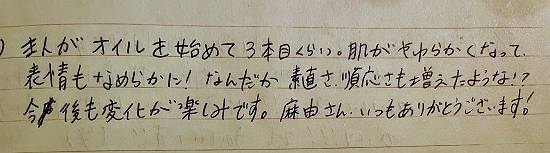 ) まんがオイルを始めて3本目くらい。肌がやわらかくなって、
表情もなめらかに! なんだか素直さ、順応さも増えたような!?
今後も変化が楽しみです。麻由さん、いつもありがとうございます!